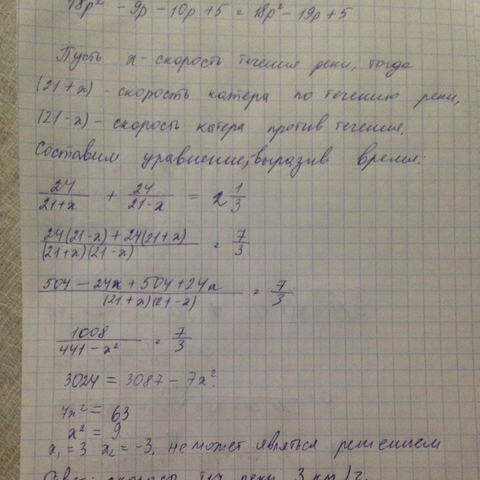 18p² - 9p - 10p + 5 = 18p² - 19p + 5
Пусть x - скорость течения реки, тогда
(21+x) - скорость катера по течению реки,
(21-x) - скорость катера против течения.
Составим уравнение, выразив время:
24/(21+x) + 24/(21-x) = 2 1/3
(24(21-x) + 24(21+x))/((21+x)(21-x)) = 7/3
(504 - 24x + 504 + 24x)/((21+x)(21-x)) = 7/3
1008/(441-x²) = 7/3
3024 = 3087 - 7x²
7x² = 63
x² = 9
x₁ = 3 x₂ = -3. не может являться решением
Ответ: скорость теч реки 3 км/ч.